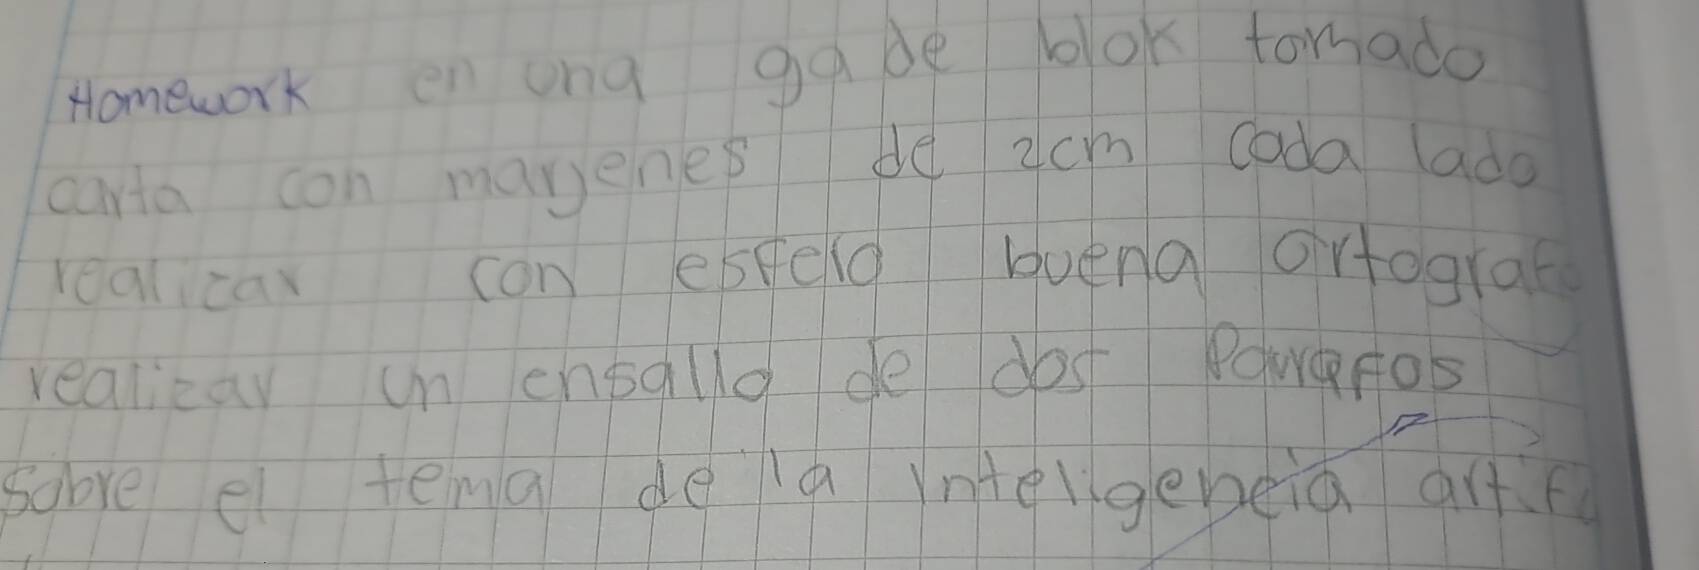 Homework en una ga de blok tomado
carta con marjenes de 2cm cada lado
realizar con esfero buena ortografo
realizar un ensallo de dos Parrafos
sobre el tema de la inteligencia artifi